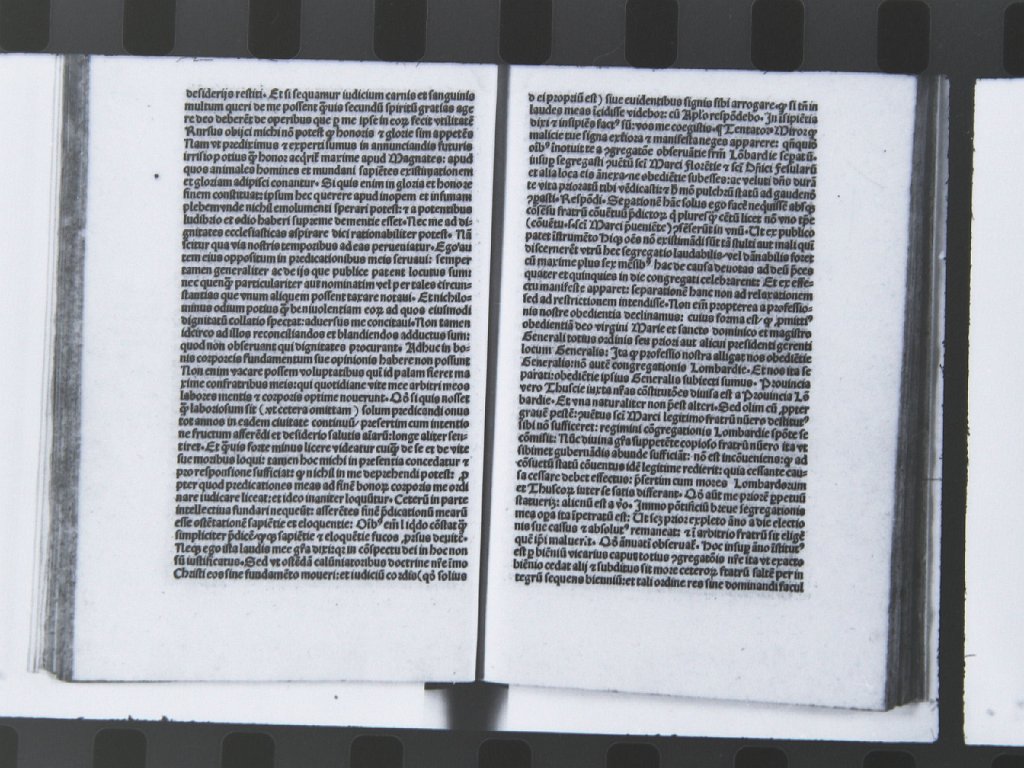 desiderijs restiti. Et si sequamur iudicium carnis et sanguinis
multum queri de me possent qͥuis secundũ spiritũ gratias age
re deo deberẽt de operibus que ꝑ me ipse in eoꝝ fecit vtilitatẽ
Rursus obijci michi nõ potest ꝙ honoris et glorie sim appetẽs
Nam vt prediximus et experti sumus in annunciandis futuris
irrisio potius ꝙ̃ honor acqͥrit̃ maxime apud Magnates: apud
quos animales homines et mundani sapiẽtes existimationem
et gloriam adipisci conantur. Si quis enim in gloria et honore
finem constituat: ipsum hec querere apud inopem et infimam
plebem vnde nichil emolumenti sperari potest: et a potentibus
ludibrio et odio haberi supreme dementie esset. Nec me ad di-
gnitates ecclesiasticas aspirare dici rationabiliter potest. Nã
scitur qua via nostris temporibus ad eas perueniatur. Ego aũ
tem eius oppositum in predicationibus meis seruaui: semper
tamen generaliter ac de ijs que publice patent locutus sum:
nec quenꝙ̃ particulariter aut nominatim vel per tales circun-
stantias que vnum aliquem possent taxare notaui. Et nichilo-
minus odium potius ꝙ̃ beniuolentiam eoꝝ ad quos eiusmodi
dignitatũ collatio spectat: aduersus me concitaui. Non tamen
idcirco ad illos reconciliandos et blandiendos adductus sum:
quod non obseruant qui dignitates procurant. Adhuc in bo-
nis corporeis fundamentum sue opinionis habere non possunt
Non enim vacare possem voluptatibus qui id palam fieret ma
xime confratribus meis: qui quotidiane vite mee arbitri meos
labores mentis et corporis optime nouerunt. Qõ si quis nosset
ꝙ̃ laboriosum sit (vt cetera omittam) solum predicandi onus
tot annos in eadem ciuitate continuũ: presertim cum intentio
ne fructum afferẽdi et desiderio salutis aĩarũ: longe aliter sen-
tiret. Et qͥuis forte minus licere videatur cuiqꝫ de se et de vite
sue moribus loqui: tamen hoc michi in presentia concedatur et
pro responsione sufficiat: ꝙ nichil in me deprehendi potest: ꝓ
pter quod predicationes meas ad finẽ bonoꝝ corporis me ordi
nare iudicare liceat: et ideo inaniter loquũtur. Ceterũ in parte
intellectiua fundari nequeũt: asserẽtes finẽ p̃dicationũ mearũ
esse ostẽtationẽ sapiẽtie et eloquentie: Oĩbꝰ em̃ liq̃do cõstat ꝙ̃
simpliciter p̃dicẽ: ꝙqꝫ sapiẽtie et eloquẽtie fucos ꝓrsus deuitẽ.
Neqꝫ ego ista laudis mee gr̃a dixerĩ: in cõspectu dei in hoc non
sũ iustificatus. Sed vt ostẽdã calũniatoribus doctrine nr̃e ĩmo
Christi eos sine fundamẽto moueri: et iudiciũ cordiũ (qõ solius
d ei propriũ est) siue euidentibus signis sibi arrogare. ꝙ si tñ in
laudes meas ĩcidisse videbor: cũ Apl̃o respõdebo. In ĩsipiẽtia
dixi et insipiẽs factꝰ sũ: vos me coegistis. ¶ Tentatoꝝ Miror ꝙ
malicie tue signa extiora et manifesta neges apparere: qñquidẽ
oĩbꝰ inotuit te a ꝯgregatõe obseruãtie frm̃ Lõbardie sepatũ.
insuꝑ segregasti ꝯuẽtũ sci Marci Florẽtie et sci Dñici Fesularũ
et alia loca eis ãnexa: ne obediẽtie subesses: ac veluti dño durã
te vita prioratũ tibi vẽdicasti: et ꝙ mõ pulchrũ statũ ad gaudenõ
ꝯpasti. Respõdi. Separationẽ hãc solus ego facẽ nequisse absqꝫ
cõsẽsu fratrũ cõuẽtuũ p̃dictoꝝ q̃ plures ꝙ̃ cẽtũ licet nõ vno tp̃e
(cõuẽtu .s. sci Marci p̃ueniẽte) ꝯseserũt in vnũ. Ut ex publico
patet ĩstrumẽto Hiqꝫ oẽs nõ existimãdi sũt tã stulti aut mali qui
discernerẽt vtrũ hec segregatio laudabilis vel dãnabilis foret
cũ maxime plus sex mẽsibꝰ hac de causa deuotas ad deũ p̃ces
quater et quinquies in die congregati celebrarent: Et ex effe-
ctu manifeste apparet: separationẽ hanc non ad relaxationem
sed ad restrictionem intendisse. Non em̃ propterea a professio-
nis nostre obedientia declinamus: cuius forma est: ꝙ ꝓmittiꝰ
obedientiã deo virgini Marie et sancto dominico et magistro
Generali totius ordinis seu priori aut alicui presidenti gerenti
locum Generalis: Ita ꝙ professio nostra alligat nos obediẽtie
Generalis: nõ autẽ congregationis Lombardie. Et nos ita se
parati: obediẽtie ipsius Generalis subiecti sumus. Prouincia
vero Thuscie iuxta nr̃as cõstitutões diuisa est a Prouincia Lõ
bardie. Et vna naturaliter non p̃est alteri. Sed olim cũ ꝓpter
grauẽ pestẽ: ꝯuẽtus sci Marci legitimo fratrũ nũero destitutꝰ
sibi nõ sufficeret: regimini cõgregationis Lombardie spõte se
cõmisit: Nũc diuina gr̃a suppetẽte copioso fratrũ nũero ita vt
sibimet gubernãdis abunde sufficiat: nõ est incõueniens: ꝙ ad
cõsuetũ statũ cõuentus idẽ legitime redierit: quia cessante cau-
sa cessare debet effectus: p̃sertim cum mores Lombardorum
et Thuscoꝝ inter se satis differant. Qõ aũt me priorẽ ꝑpetuũ
statuerĩ: alienũ est a ꝟo. Immo põtificiũ breue segregationis
mea oꝑa ita ĩpetratũ est: Ut scꝫ prior expleto ãno a die electio
nis sue cassus et absolutꝰ remaneat: et ĩ arbitrio fratrũ sit eligẽ
quẽ ipsi maluerĩt. Qõ ãnuati obseruat̃. Hoc insuꝑ ãno ĩstitutꝰ
est ꝑ bieniũ vicarius caput totius ꝯgregatõis nr̃e ita vt exacto
biẽnio cedat alij et subditus sit more ceteroꝝ fratrũ saltẽ per in
tegrũ sequens bieniũ: et tali ordine res sine dominandi facul